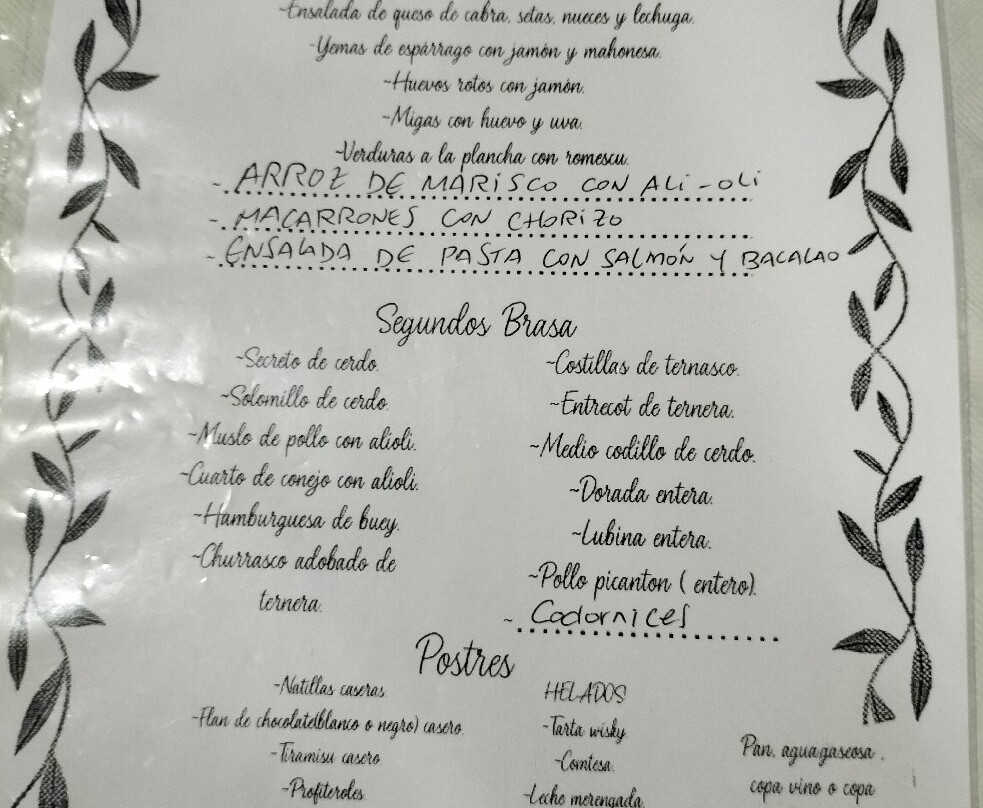 ~Ensalada de queso de cabra, setas, nueces y lechuga.
~Yemas de espárrago con jamón y mahonesa.
~Huevos rotos con jamón.
~Migas con huevo y uva.
~Verduras a la plancha con romescu.
- ARROZ DE MARISCO CON ALI-OLI
- MACARRONES CON CHORIZO
- ENSALADA DE PASTA CON SALMÓN Y BACALAO
Segundos Brasa
~Secreto de cerdo.
~Solomillo de cerdo.
~Muslo de pollo con alioli.
~Cuarto de conejo con alioli.
~Hamburguesa de buey.
~Churrasco adobado de
ternera.
~Costillas de ternasco.
~Entrecot de ternera.
~Medio codillo de cerdo.
~Dorada entera.
~Lubina entera.
~Pollo picanton ( entero).
~ Codornices
Postres
~Natillas caseras
~Flan de chocolate(blanco o negro) casero.
~Tiramisu casero
~Profiteroles.
HELADOS
~Tarta wisky
~Comtesa.
~Leche merengada.
Pan, agua,gaseosa ,
copa vino o copa